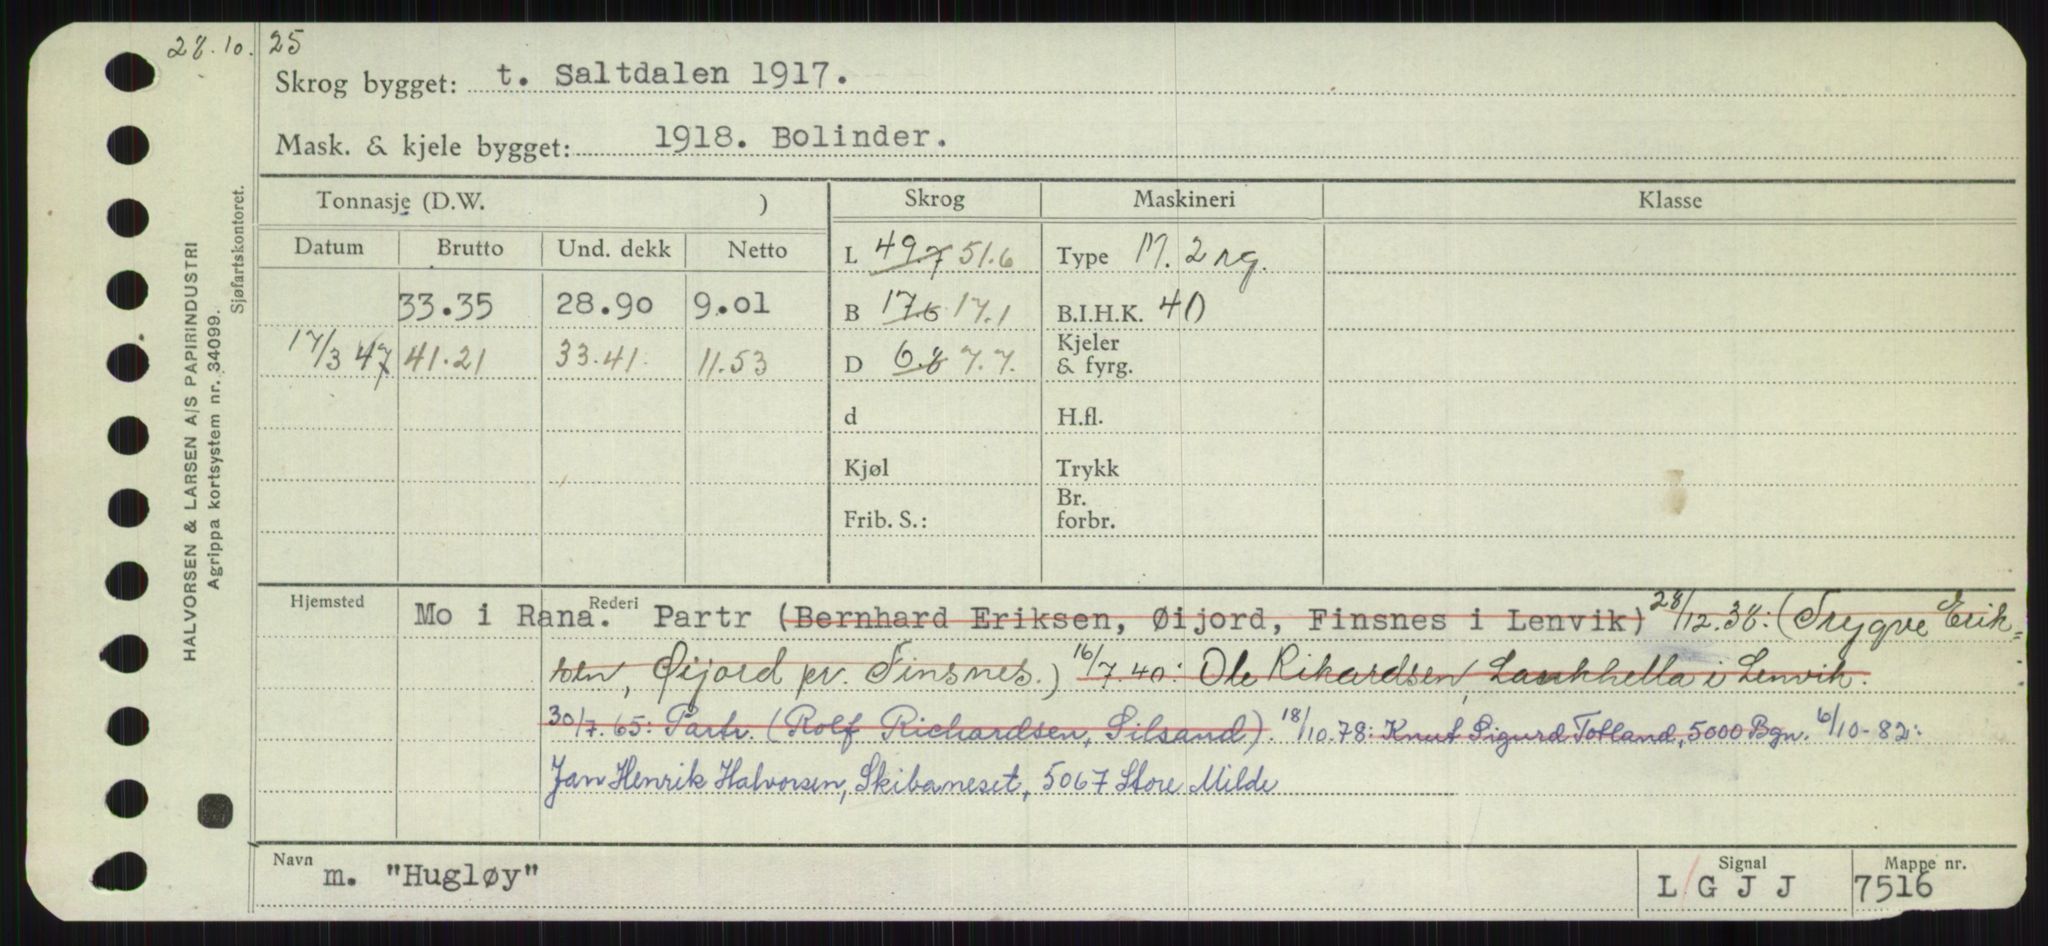 28.10.25
Skrog bygget: t. Saltdalen 1917.
Mask. & kjele bygget: 1918. Bolinder.
Tonnasje (D.W. ) Skrog Maskineri Klasse
Datum Brutto Und. dekk Netto L 49.7 51.6 Type M. 2 rg.
33.35 28.90 9.01 B 17.6 17.1 B.I.H.K. 40
17/3 47 41.21 33.41 11.53 D 6.8 7.7. Kjeler & fyrg.
d H.fl.
Kjøl Trykk
Frib. S.: Br. forbr.
Hjemsted Mo i Rana. Rederi Partr (Bernhard Eriksen, Øijord, Finsnes i Lenvik) 28/12.38: (Trygve Erik=
sen, Øijord pr. Finsnes.) 16/7.40: Ole Rikardsen, Laukhella i Lenvik.
30/7.65: Partr. (Rolf Richardsen, Silsand). 18/10.78: Knut Sigurd Totland, 5000 Bgn. 6/10-82:
Jan Henrik Halvorsen, Skibaneset, 5067 Store Milde
Navn m. "Hugløy" Signal L G J J Mappe nr. 7516
HALVORSEN & LARSEN A/S PAPIRINDUSTRI
Agrippa kortsystem nr. 34099.
Sjøfartskontoret.